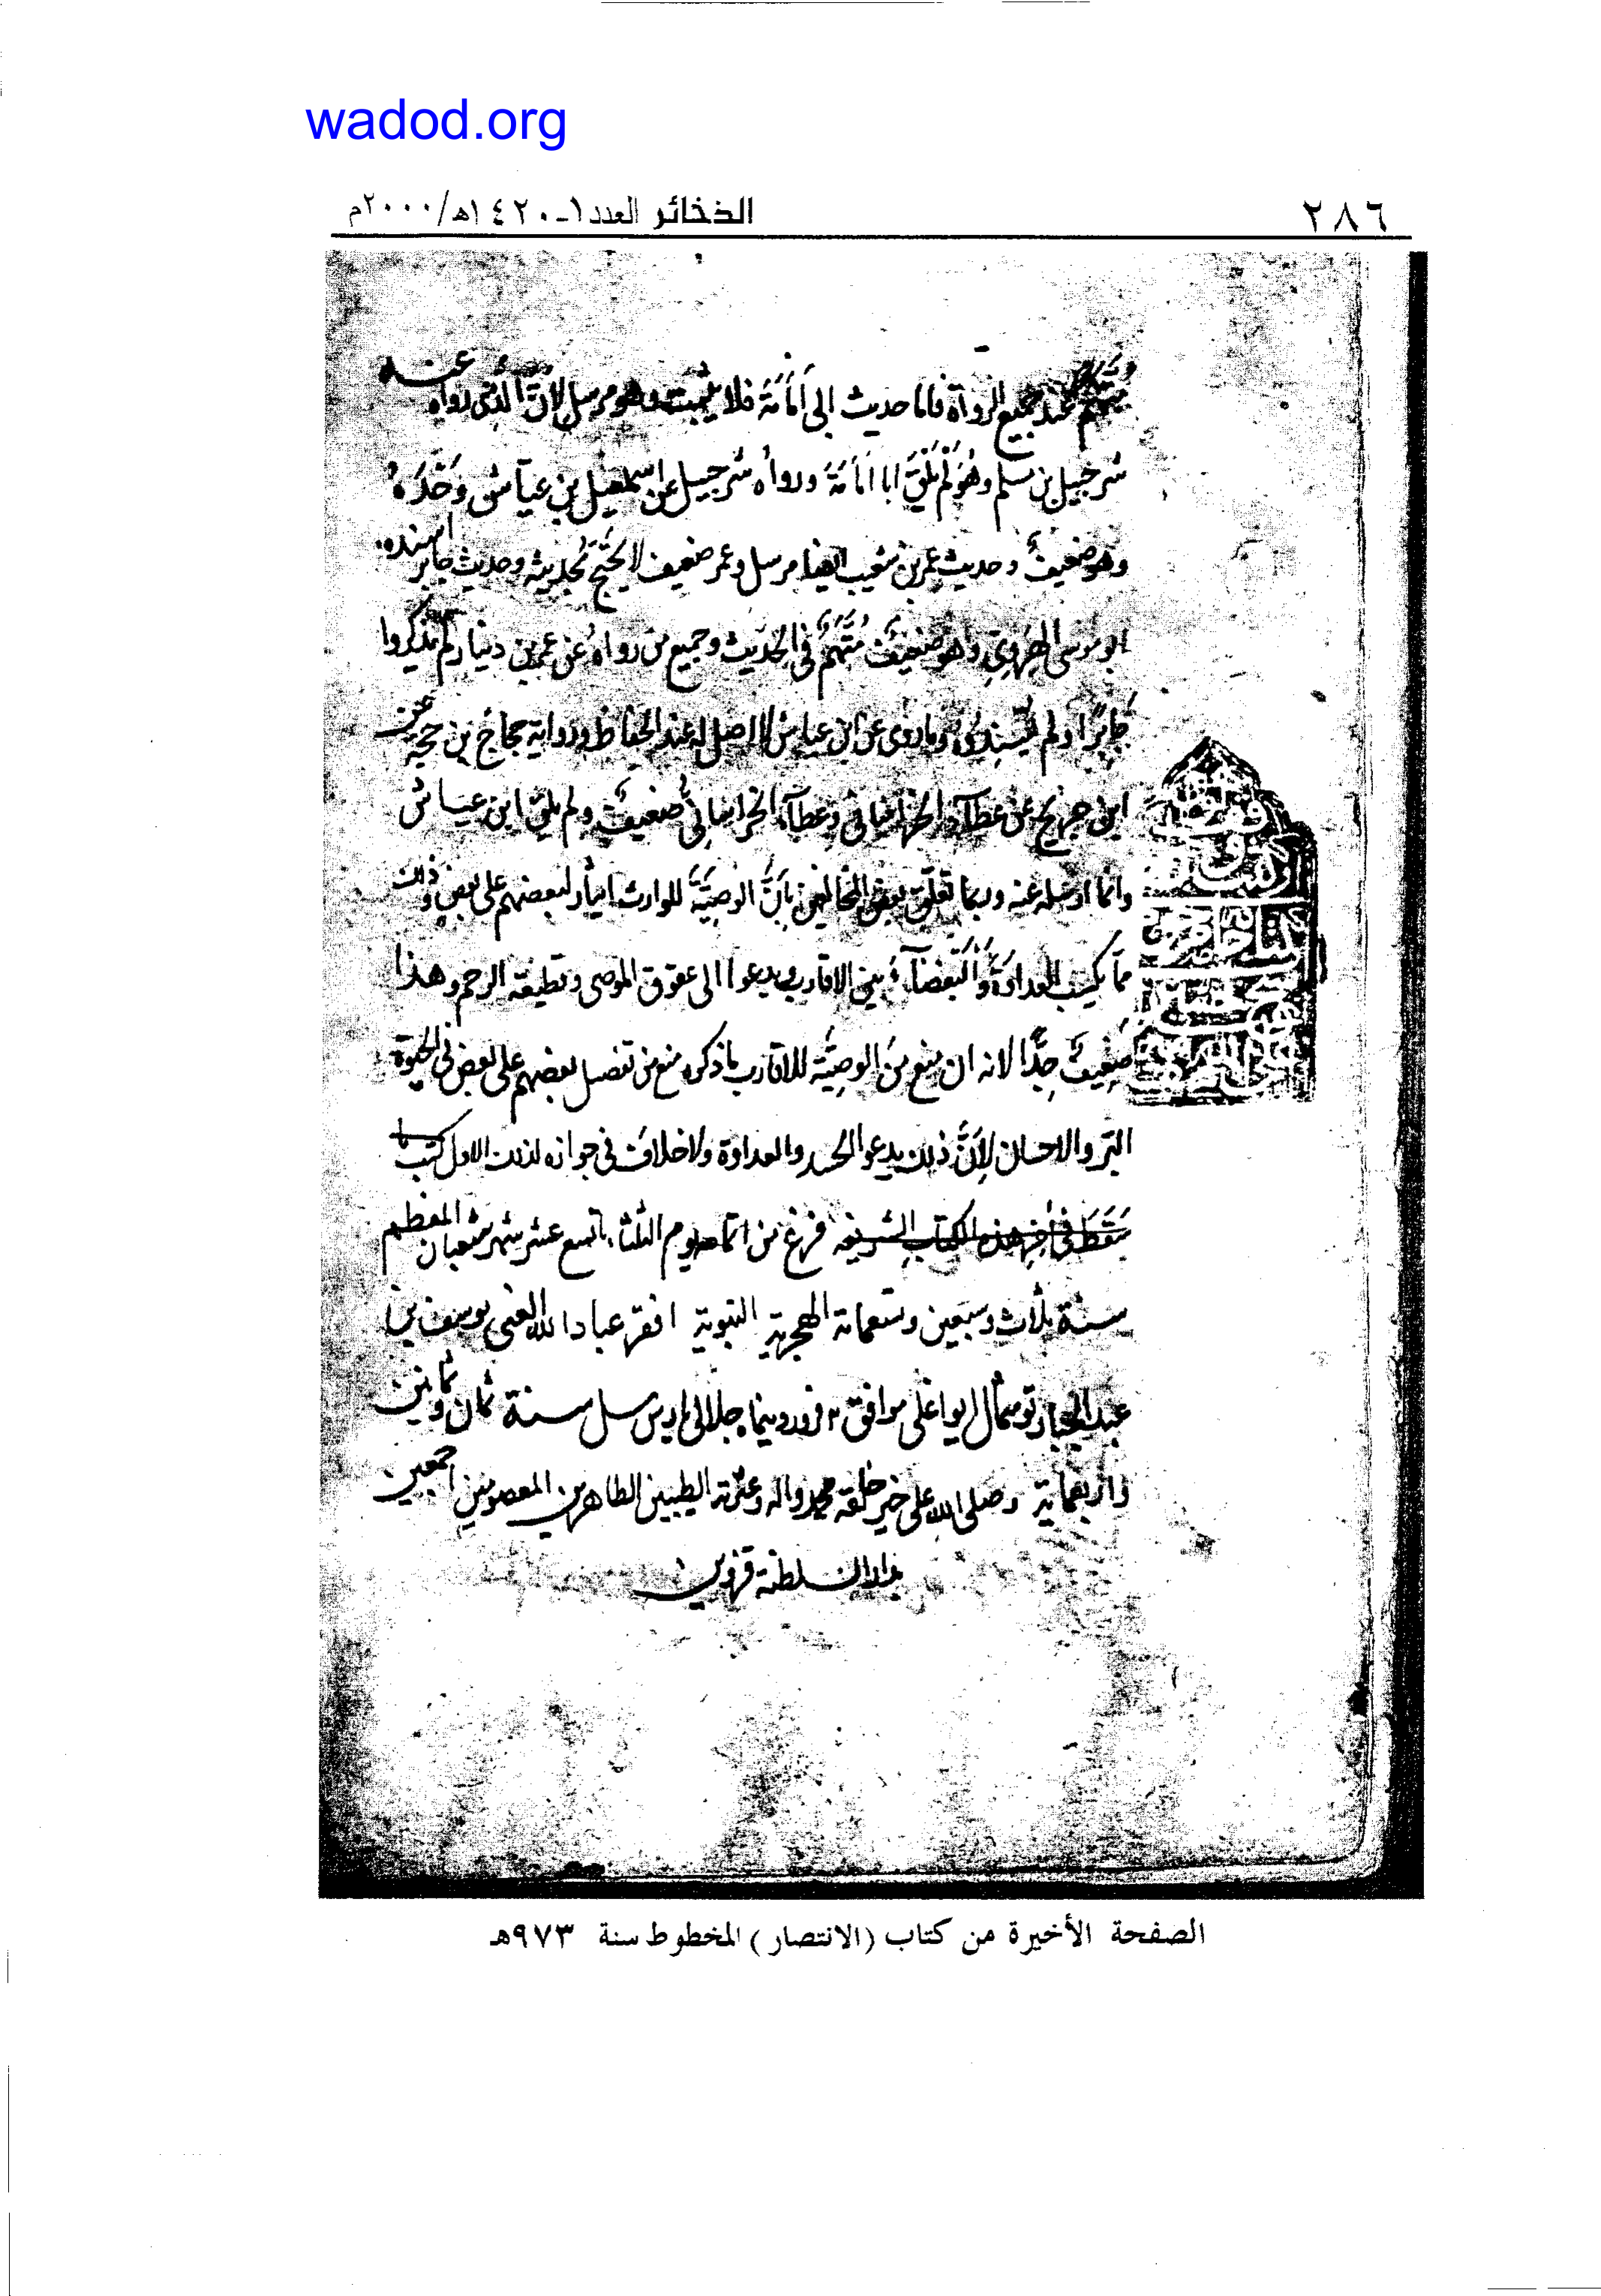 wadod.org
٢٨٦
الذخائر العدد ١-١٤٢٠هـ/٢٠٠٠م
متهم عند جميع الرواة فاما حديث ابى أمَامَةَ فلا يثبت وهو مرسل لانّ الذى رواه عنه
شرجبيل بن مسلم وهُوَ لم يَلْقَ ابا امَامَةَ ورواه شرجبيل عن اسمعيل بن عياش وَحْدَهُ
وهو ضعيف وحديث عمر بن شعيب ايضا مرسل وعمر ضعيف لا يحتج بحديثه وحديث جابر اسنده
ابو موسى الهروى وهو ضعيف متّهم فى الحديث وجميع من رواه عن عمر بن دينار لم يذكروا
جابرًا ولم يسندوه وما روى عن ابن عباس لا اصل له عند الحفاظ ورواية حجاج بن عن
ابن جريج عن عطاء الخراسانى وعطاء الخراسانى ضعيف ولم يلق ابن عباس
وانما ارسله عنه وربما تعلّق بعض المخالفين بانّ الوصيّة للوارث ايثار لبعضهم على بعض وذلك
ممّا يكسب العداوة والبغضاء بين الاقارب ويدعوا الى عقوق الموصى وقطيعة الرحم وهذا
ضعيف جدًّا لانه ان منع من الوصيّة للاقارب ما ذكره منع من تفضيل بعضهم على بعض فى الحيوة
البر والاحسان لانّ ذلك يدعو الحسد والعداوة ولا خلاف فى جوازه لذلك الاول كتب ما
سَقَطَ فى اخر هذه الكتاب الشريفه فرغ من اتمامه يوم الثلثاء تاسع عشر شهر شعبان المعظم
سنة ثلاث وسبعين وتسعمائة الهجرية النبوية افقر عباد الله الغنى يوسف بن
عبد الجبار موافق جلالى سنة ثمان وثمانين
واربعمائة وصلى الله على خير خلقه محمد واله وعترته الطيبين الطاهرين المعصومين اجمعين
بدار السلطنة قزوين
الصفحة الأخيرة من كتاب (الانتصار) المخطوط سنة ٩٧٣هـ